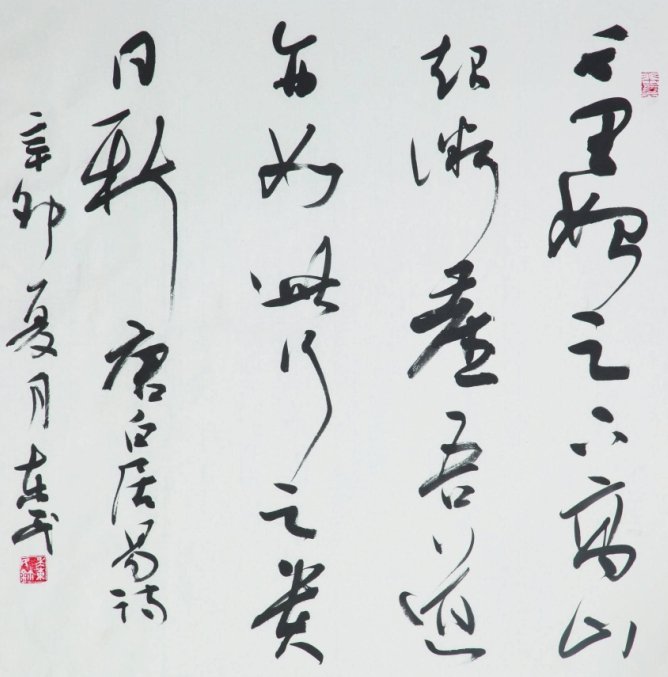 千里始足下高山
起微塵吾道
亦如此行之貴
日新 唐白居易詩
辛卯夏月東民